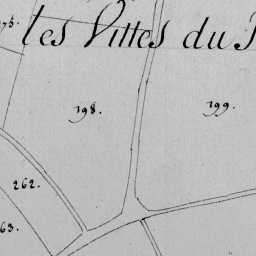 les Vittes du
198.
199.
262.